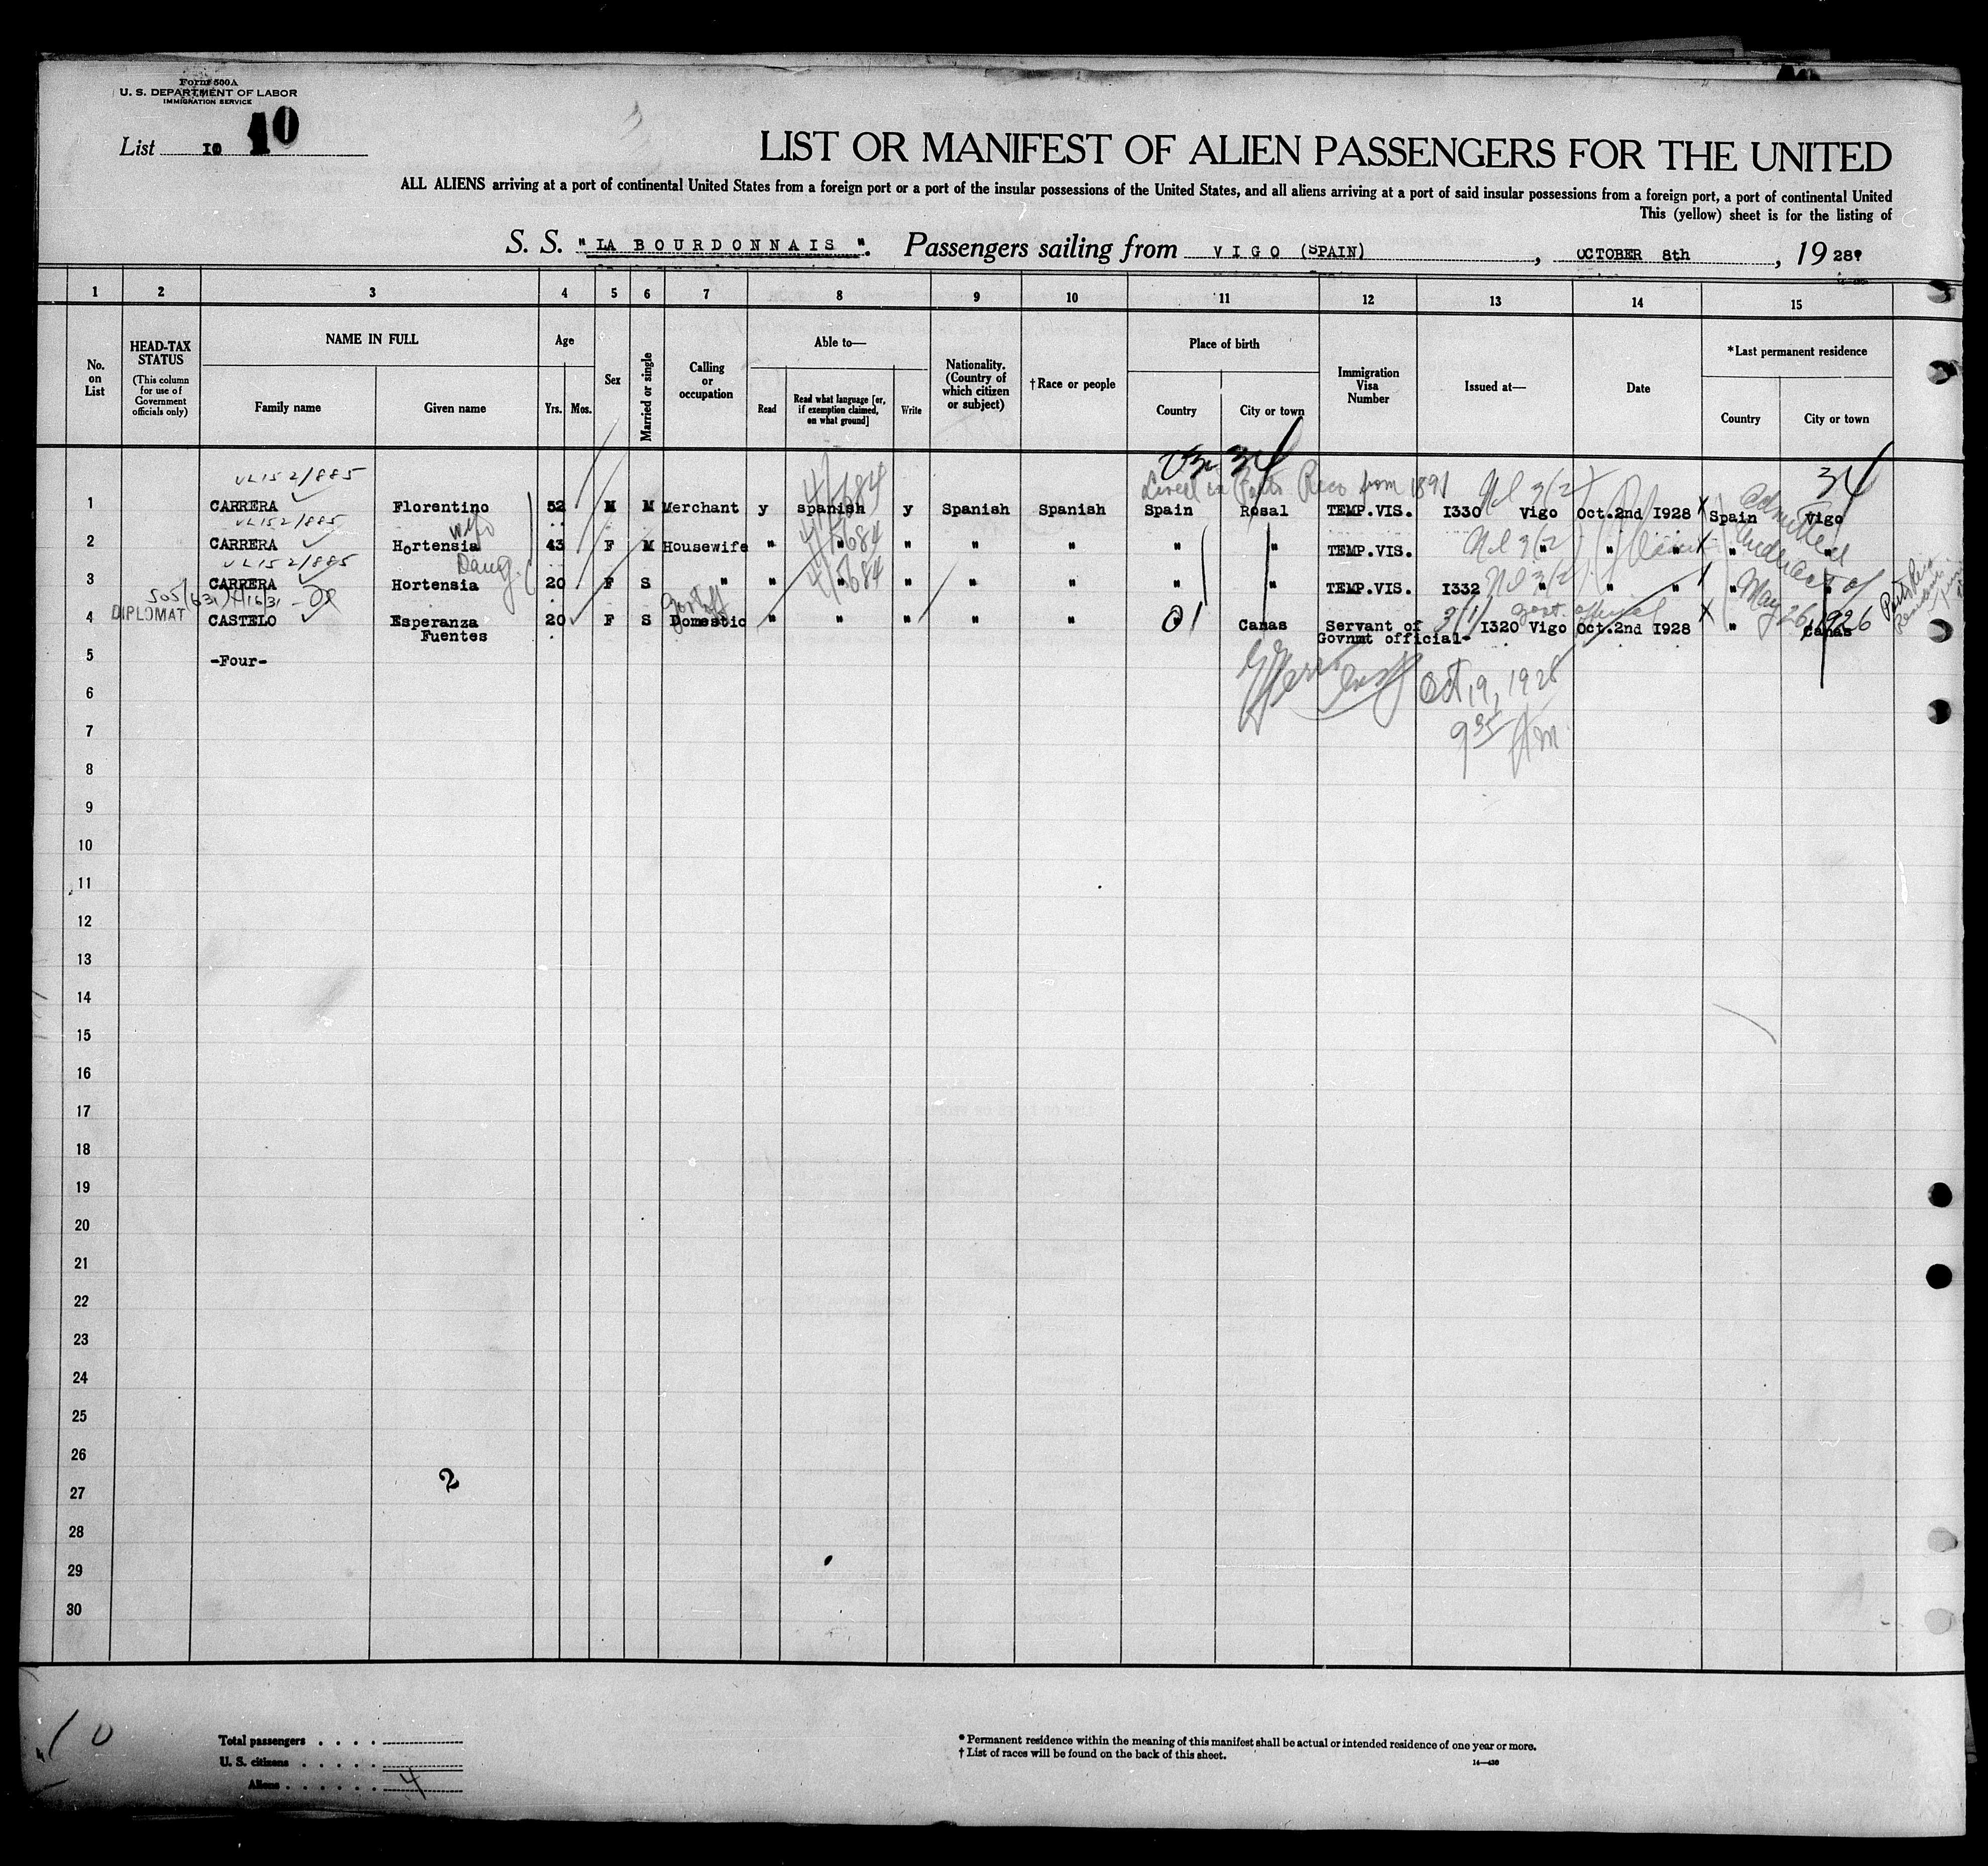 Form 500A
U. S. DEPARTMENT OF LABOR
IMMIGRATION SERVICE
List 10 10
LIST OR MANIFEST OF ALIEN PASSENGERS FOR THE UNITED
ALL ALIENS arriving at a port of continental United States from a foreign port or a port of the insular possessions of the United States, and all aliens arriving at a port of said insular possessions from a foreign port, a port of continental United
This (yellow) sheet is for the listing of
S. S. "LA BOURDONNAIS". Passengers sailing from VIGO (SPAIN), OCTOBER 8th, 1928
1 2 3 4 5 6 7 8 9 10 11 12 13 14 15
No. on List
HEAD-TAX STATUS
(This column for use of Government officials only)
NAME IN FULL
Family name Given name
Age
Yrs. Mos.
Sex
Married or single
Calling or occupation
Able to—
Read
Read what language [or, if exemption claimed, on what ground]
Write
Nationality. (Country of which citizen or subject)
†Race or people
Place of birth
Country City or town
Immigration Visa Number
Issued at—
Date
*Last permanent residence
Country City or town
34 34
Lived in Porto Rico from 1891
VL152/885 4/5684
1 CARRERA Florentino 52 M M Merchant y spanish y Spanish Spanish Spain Rosal TEMP.VIS. I330 Vigo Oct.2nd I928 Spain Vigo
VL152/885 Wife 4/5684
2 CARRERA Hortensia 43 F M Housewife " " " " " " " TEMP.VIS. " " " " "
VL152/885 Daug. 4/5684
3 CARRERA Hortensia 20 F S " " " " " " " " TEMP.VIS. I332 " " " " "
Admitted under act of May 26, 1926
DIPLOMAT
Govt official
4 CASTELO Esperanza Fuentes 20 F S Domestic " " " " " 01 Canas Servant of Govnmt official- 3(1) I320 Vigo Oct.2nd I928 " Canas
5 -Four-
Oct 19, 1928
9 35 AM
6
7
8
9
10
11
12
13
14
15
16
17
18
19
20
21
22
23
24
25
26
2
27
28
29
30
10
Total passengers
U. S. citizens
Aliens 4
* Permanent residence within the meaning of this manifest shall be actual or intended residence of one year or more.
† List of races will be found on the back of this sheet.
14—430